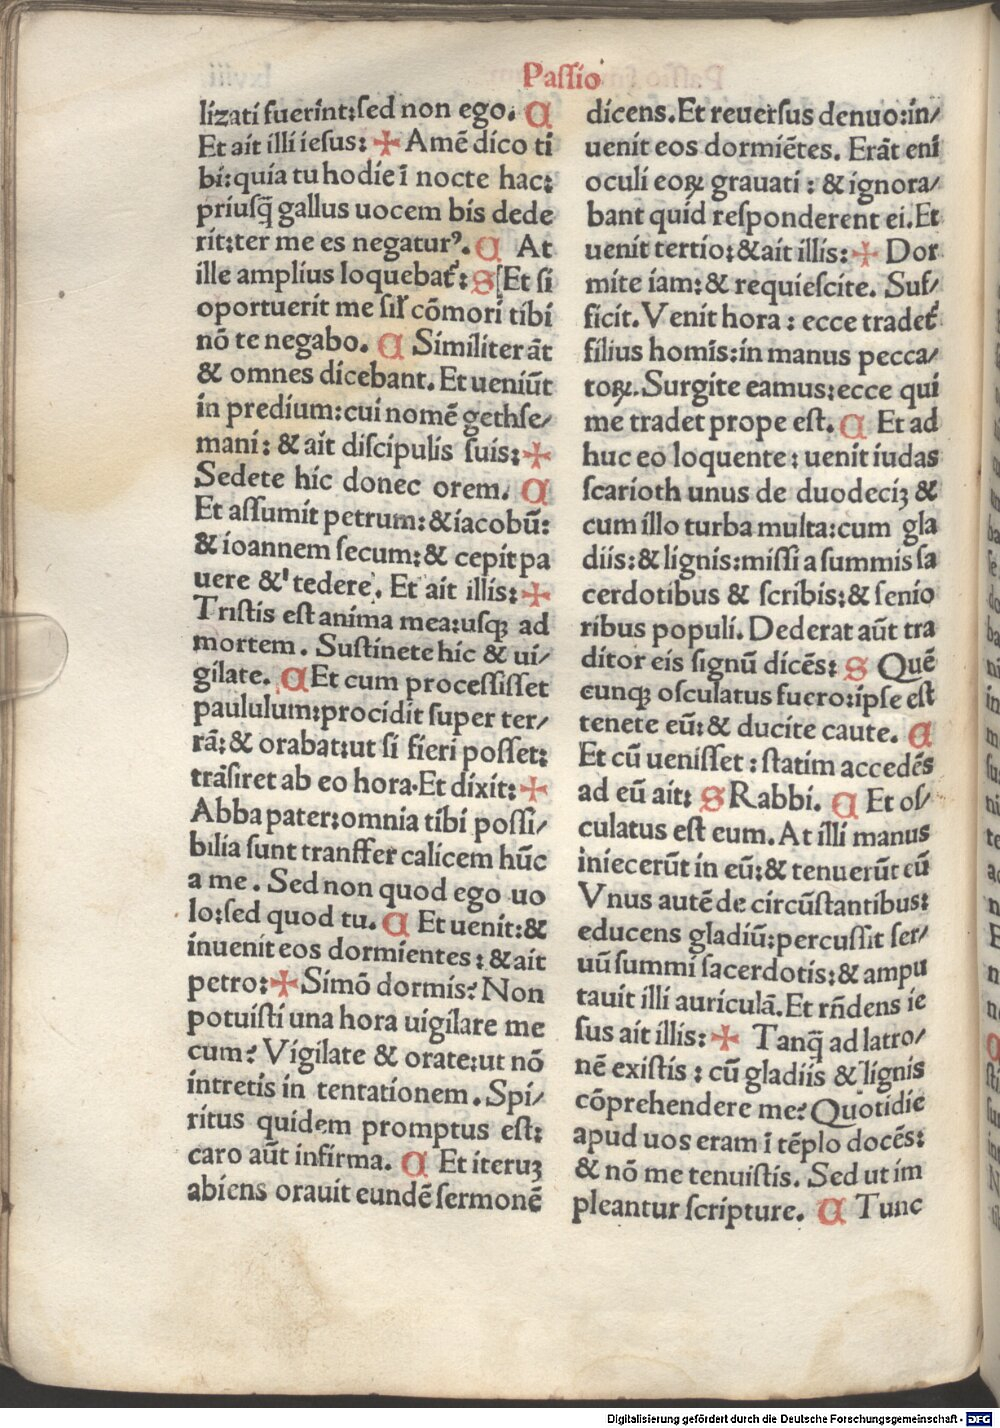 Paſſio
lizati fuerint:ſed non ego. C
Et ait illi ieſus: ✠ Amē dico ti
bi:quia tu hodie ī nocte hac:
priusq̄ gallus uocem bis dede
rit:ter me es negaturꝰ. C At
ille amplius loquebat᷑: S Et ſi
oportuerit me ſil̉ cōmori tibi
nō te negabo. C Similiter āt
& omnes dicebant. Et ueniūt
in predium:cui nomē gethſe/
mani: & ait diſcipulis ſuis: ✠
Sedete hic donec orem. C
Et aſſumit petrum:& iacobū:
& ioannem ſecum:& cepit pa
uere & tedere. Et ait illis: ✠
Triſtis eſt anima mea:uſqꝫ ad
mortem. Suſtinete hic & ui/
gilate. C Et cum proceſſiſſet
paululum:procidit ſuper ter/
rā:& orabat:ut ſi fieri poſſet:
trāſiret ab eo hora.Et dixit: ✠
Abba pater:omnia tibi poſſi/
bilia ſunt tranſfer calicem hūc
a me. Sed non quod ego uo
lo:ſed quod tu. C Et uenit:&
inuenit eos dormientes: & ait
petro: ✠ Simō dormis? Non
potuiſti una hora uigilare me
cum? Vigilate & orate:ut nō
intretis in tentationem. Spi/
ritus quidem promptus eſt:
caro aūt infirma. C Et iteruꝫ
abiens orauit eundē ſermonē
dicens.Et reuerſus denuo:in/
uenit eos dormiētes. Erāt enī
oculi eoꝝ grauati: & ignora/
bant quid reſponderent ei.Et
uenit tertio:& ait illis: ✠ Dor
mite iam:& requieſcite. Suf/
ficit. Venit hora: ecce tradet᷑
filius homīs:in manus pecca/
toꝝ. Surgite eamus:ecce qui
me tradet prope eſt. C Et ad
huc eo loquente: uenit iudas
ſcarioth unus de duodeciꝫ &
cum illo turba multa:cum gla
diis:& lignis:miſſi a ſummis ſa
cerdotibus & ſcribis:& ſenio
ribus populi. Dederat aūt tra
ditor eis ſignū dicēs: S Quē
cunqꝫ oſculatus fuero:ipſe eſt
tenete eū:& ducite caute. C
Et cū ueniſſet: ſtatim accedēs
ad eū ait: S Rabbi. C Et oſ/
culatus eſt eum. At illi manus
iniecerūt in eū:& tenuerūt eū
Vnus autē de circūſtantibus:
educens gladiū:percuſſit ſer/
uū ſummi ſacerdotis:& ampu
tauit illi auriculā.Et rn̄dens ie
ſus ait illis: ✠ Tanq̄ ad latro/
nē exiſtis: cū gladiis & lignis
cōprehendere me? Quotidie
apud uos eram ī tēplo docēs:
& nō me tenuiſtis. Sed ut im
pleantur ſcripture. C Tunc
Digitalisierung gefördert durch die Deutsche Forschungsgemeinschaft - DFG